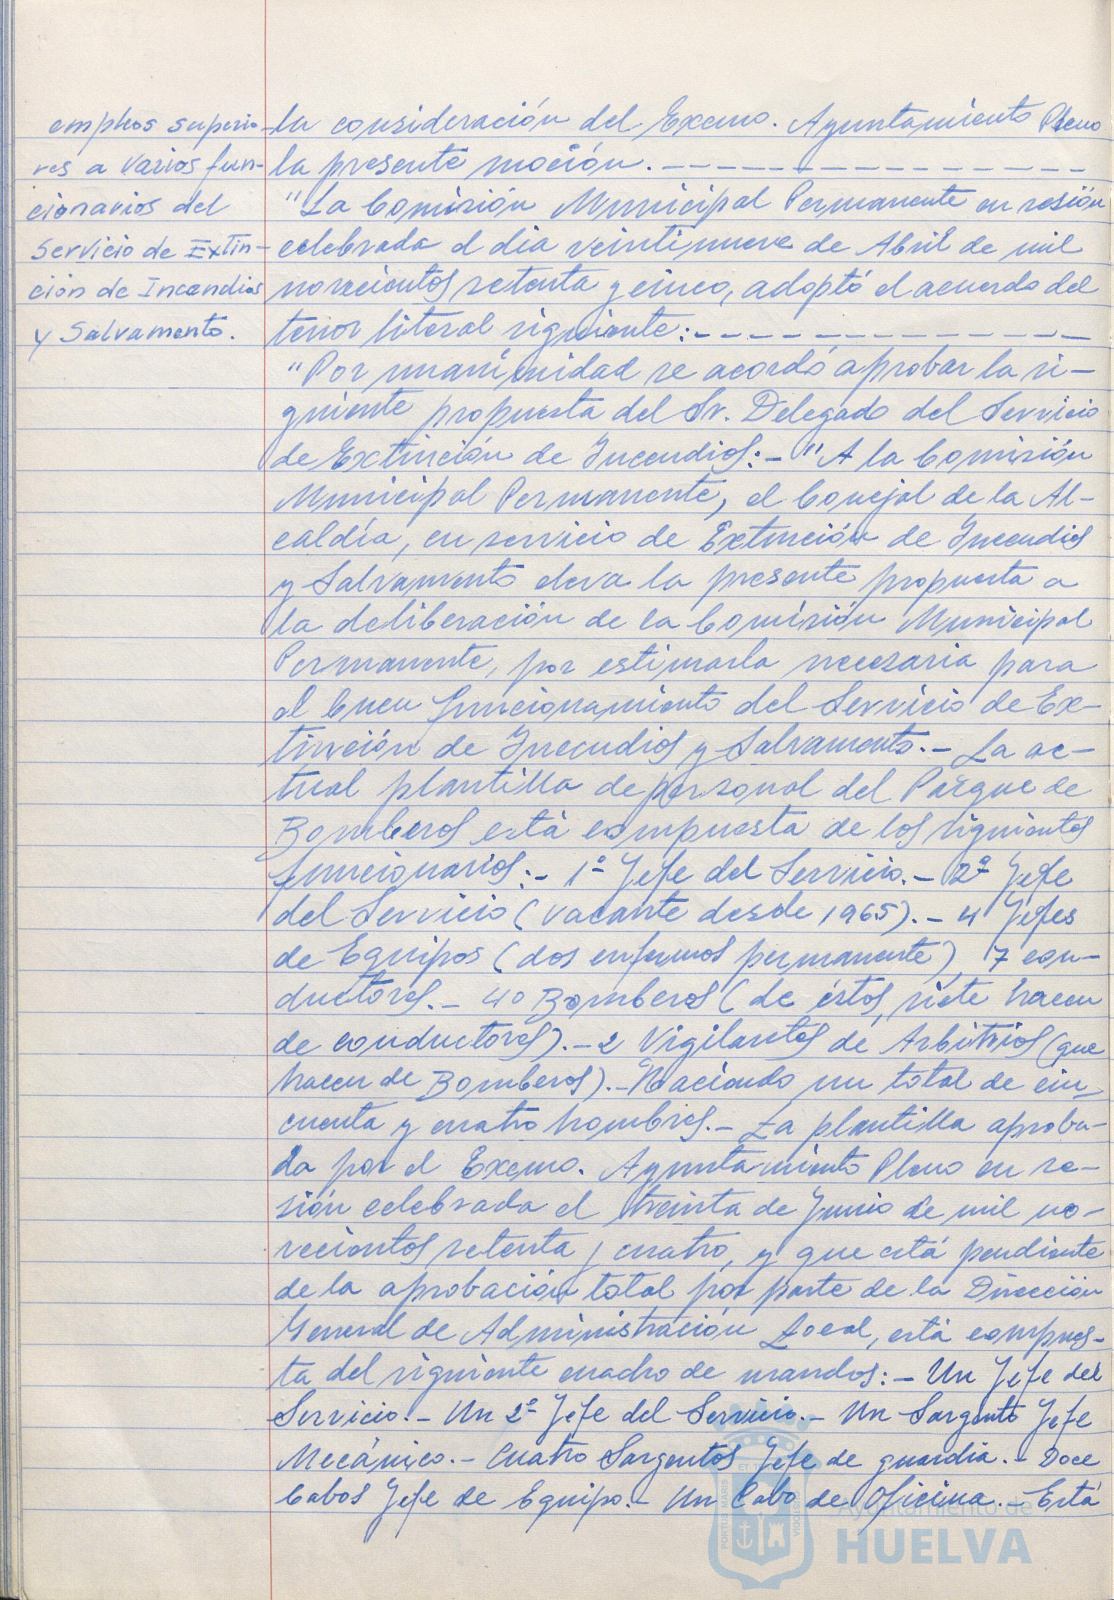 empleos superio-
res a varios fun-
cionarios del
Servicio de Extin-
ción de Incendios
y Salvamento.
la consideración del Excmo. Ayuntamiento Pleno
la presente moción. — — — — — — — — — — — — —
"La Comisión Municipal Permanente en sesión
celebrada el dia veintinueve de Abril de mil
novecientos setenta y cinco, adoptó el acuerdo del
tenor literal siguiente:- — — — — — — — — — — —
"Por unanimidad se acordó aprobar la si-
guiente propuesta del Sr. Delegado del Servicio
de Extinción de Incendios:- "A la Comisión
Municipal Permanente, el Concejal de la Al-
caldía, en servicio de Extinción de Incendios
y Salvamento eleva la presente propuesta a
la deliberación de la Comisión Municipal
Permanente, por estimarla necesaria para
el buen funcionamiento del Servicio de Ex-
tinción de Incendios y Salvamento.- La ac-
tual plantilla de personal del Parque de
Bomberos está compuesta de los siguientes
funcionarios:- 1º Jefe del Servicio.- 2º Jefe
del Servicio (vacante desde 1965).- 4 Jefes
de Equipos (dos enfermos permanente) 7 con-
ductores.- 40 Bomberos (de éstos, siete hacen
de conductores).- 2 Vigilantes de Arbitrios (que
hacen de Bomberos).- Haciendo un total de cin-
cuenta y cuatro hombres.- La plantilla aproba-
da por el Excmo. Ayuntamiento Pleno en se-
sión celebrada el treinta de Junio de mil no-
vecientos setenta y cuatro, y que está pendiente
de la aprobación total por parte de la Dirección
General de Administración Local, está compues-
ta del siguiente cuadro de mandos:- Un Jefe del
Servicio.- Un 2º Jefe del Servicio.- Un Sargento Jefe
Mecánico.- Cuatro Sargentos Jefe de guardia.- Doce
Cabos Jefe de Equipo.- Un Cabo de Oficina.- Está
Ayuntamiento de
HUELVA